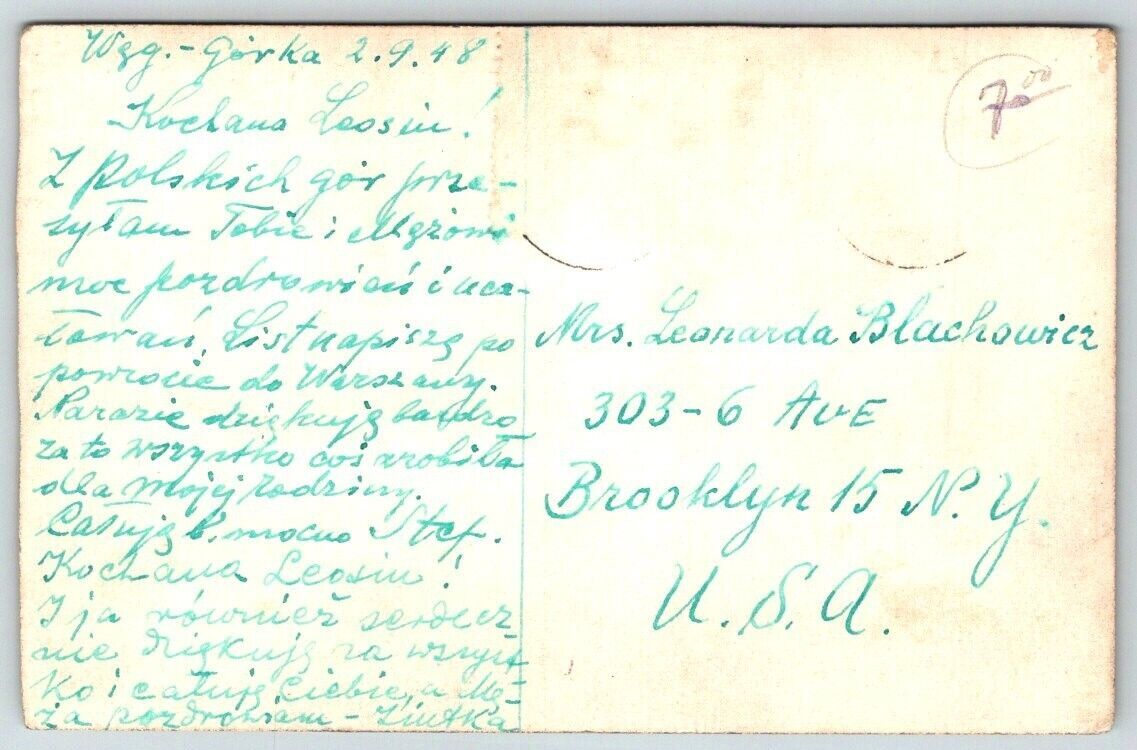 Węg.-Górka 2.9.48
Kochana Leosiu!
Z polskich gór prze-
syłam Tobie i Mężowi
moc pozdrowień i uca-
łowań. List napiszę po
powrocie do Warszawy.
Narazie dziękuję bardzo
za to wszystko coś zrobiła
dla mojej rodziny.
Całuję b. mocno Stef.
Kochana Leosiu!
I ja również serdecz
nie dziękuję za wszyst
ko i całuję Ciebie, a Mę-
ża pozdrawiam - Ziutka
7 00
Mrs. Leonarda Blachowicz
303-6 AVE
Brooklyn 15 N.Y.
U.S.A.